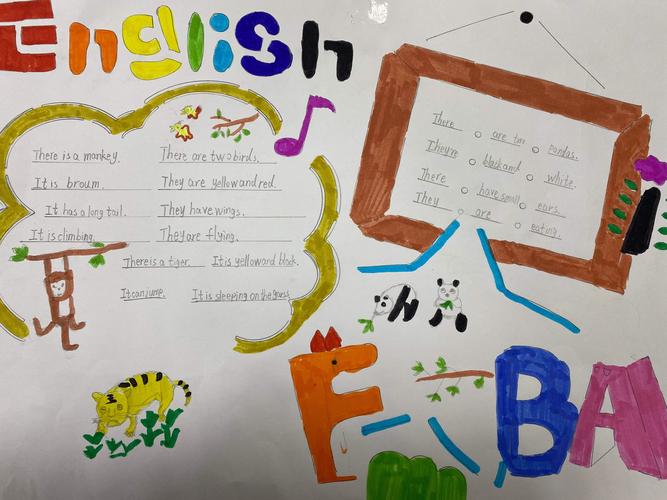 English
There is a monkey. There are two birds.
It is broum. They are yellow and red.
It has a long tail. They have wings.
It is climbing. They are flying.
There is a tiger. It is yellow and black.
It can jump. It is sleeping on the grass.
There are two pandas.
They're black and white.
There have small ears.
They are eating.
F BA